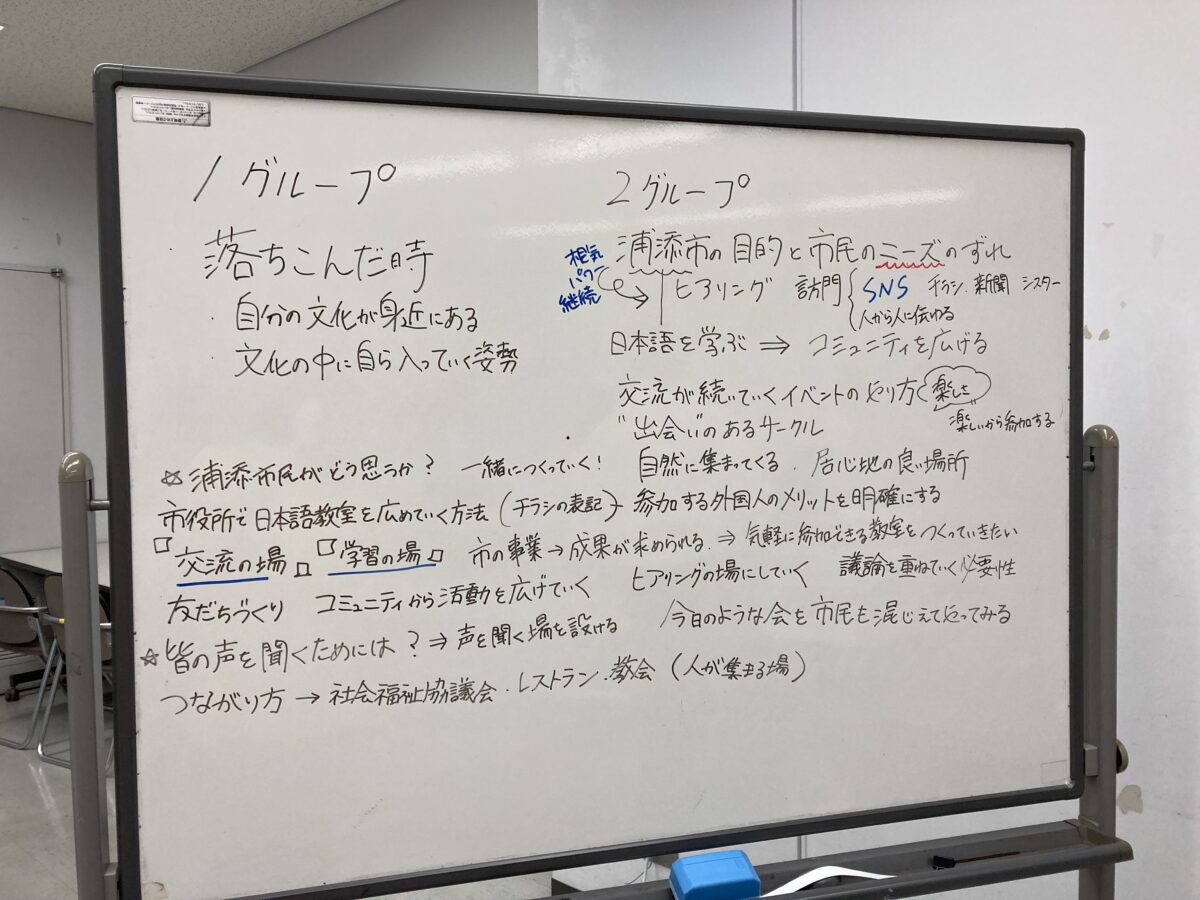 1グループ
落ちこんだ時
自分の文化が身近にある
文化の中に自ら入っていく姿勢
2グループ
浦添市の目的と市民のニーズのずれ
根気
パワー
継続
ヒアリング 訪問 SNS チラシ・新聞 シスター
人から人に伝わる
日本語を学ぶ ⇒ コミュニティを広げる
交流が続いていくイベントのやり方 楽しさ
楽しいから参加する
"出会い"のあるサークル
☆浦添市民がどう思うか? 一緒につくっていく! 自然に集まってくる. 居心地の良い場所
市役所で日本語教室を広めていく方法 (チラシの表記) 参加する外国人のメリットを明確にする
交流の場 学習の場 市の事業→成果が求められる.⇒気軽に参加できる教室をつくっていきたい
友だちづくり コミュニティから活動を広げていく ヒアリングの場にしていく 議論を重ねていく必要性
☆皆の声を聞くためには?⇒声を聞く場を設ける 今日のような会を市民も混じえてやってみる
つながり方→社会福祉協議会・レストラン・教会(人が集まる場)